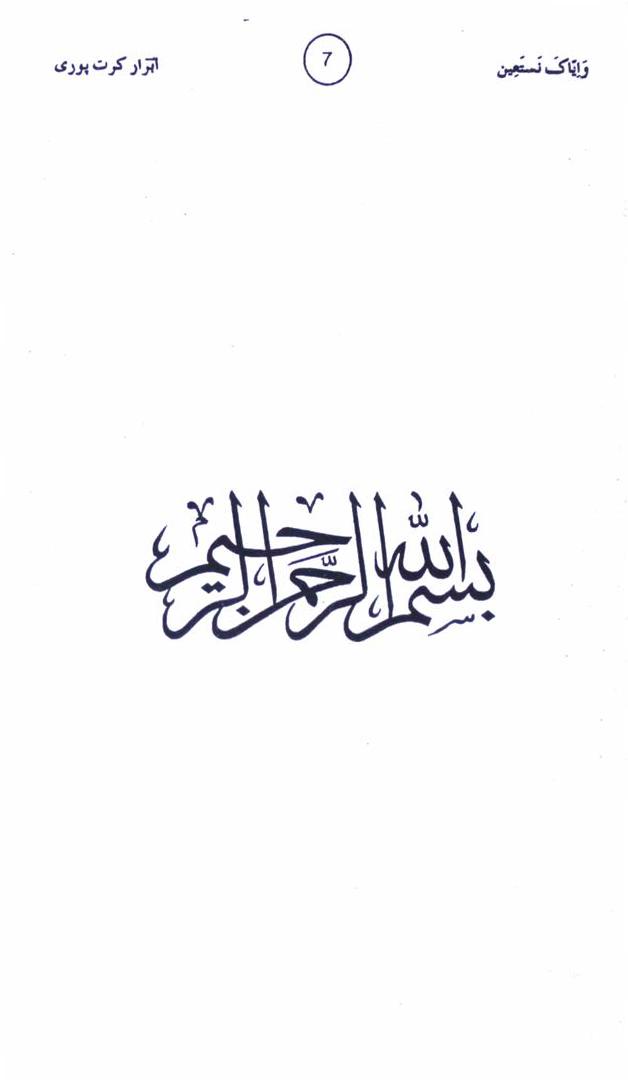 وَاِیّاکَ نَستَعِین 7 ابرار کرت پوری
بسم الله الرحمن الرحیم